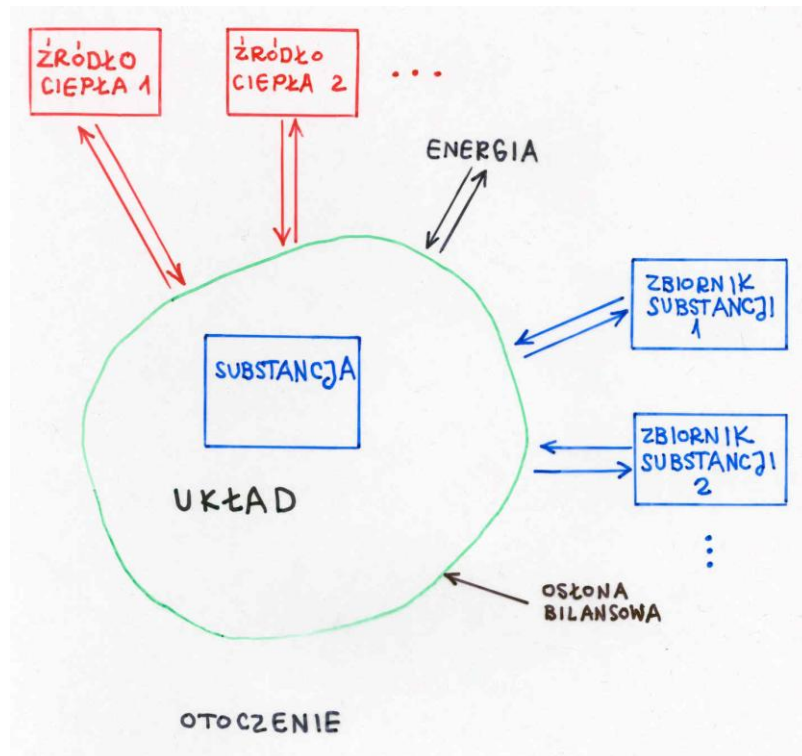 ŹRÓDŁO
CIEPŁA 1
ŹRÓDŁO
CIEPŁA 2
...
ENERGIA
ZBIORNIK
SUBSTANCJI
1
SUBSTANCJA
ZBIORNIK
SUBSTANCJI
2
UKŁAD
OSŁONA
BILANSOWA
OTOCZENIE